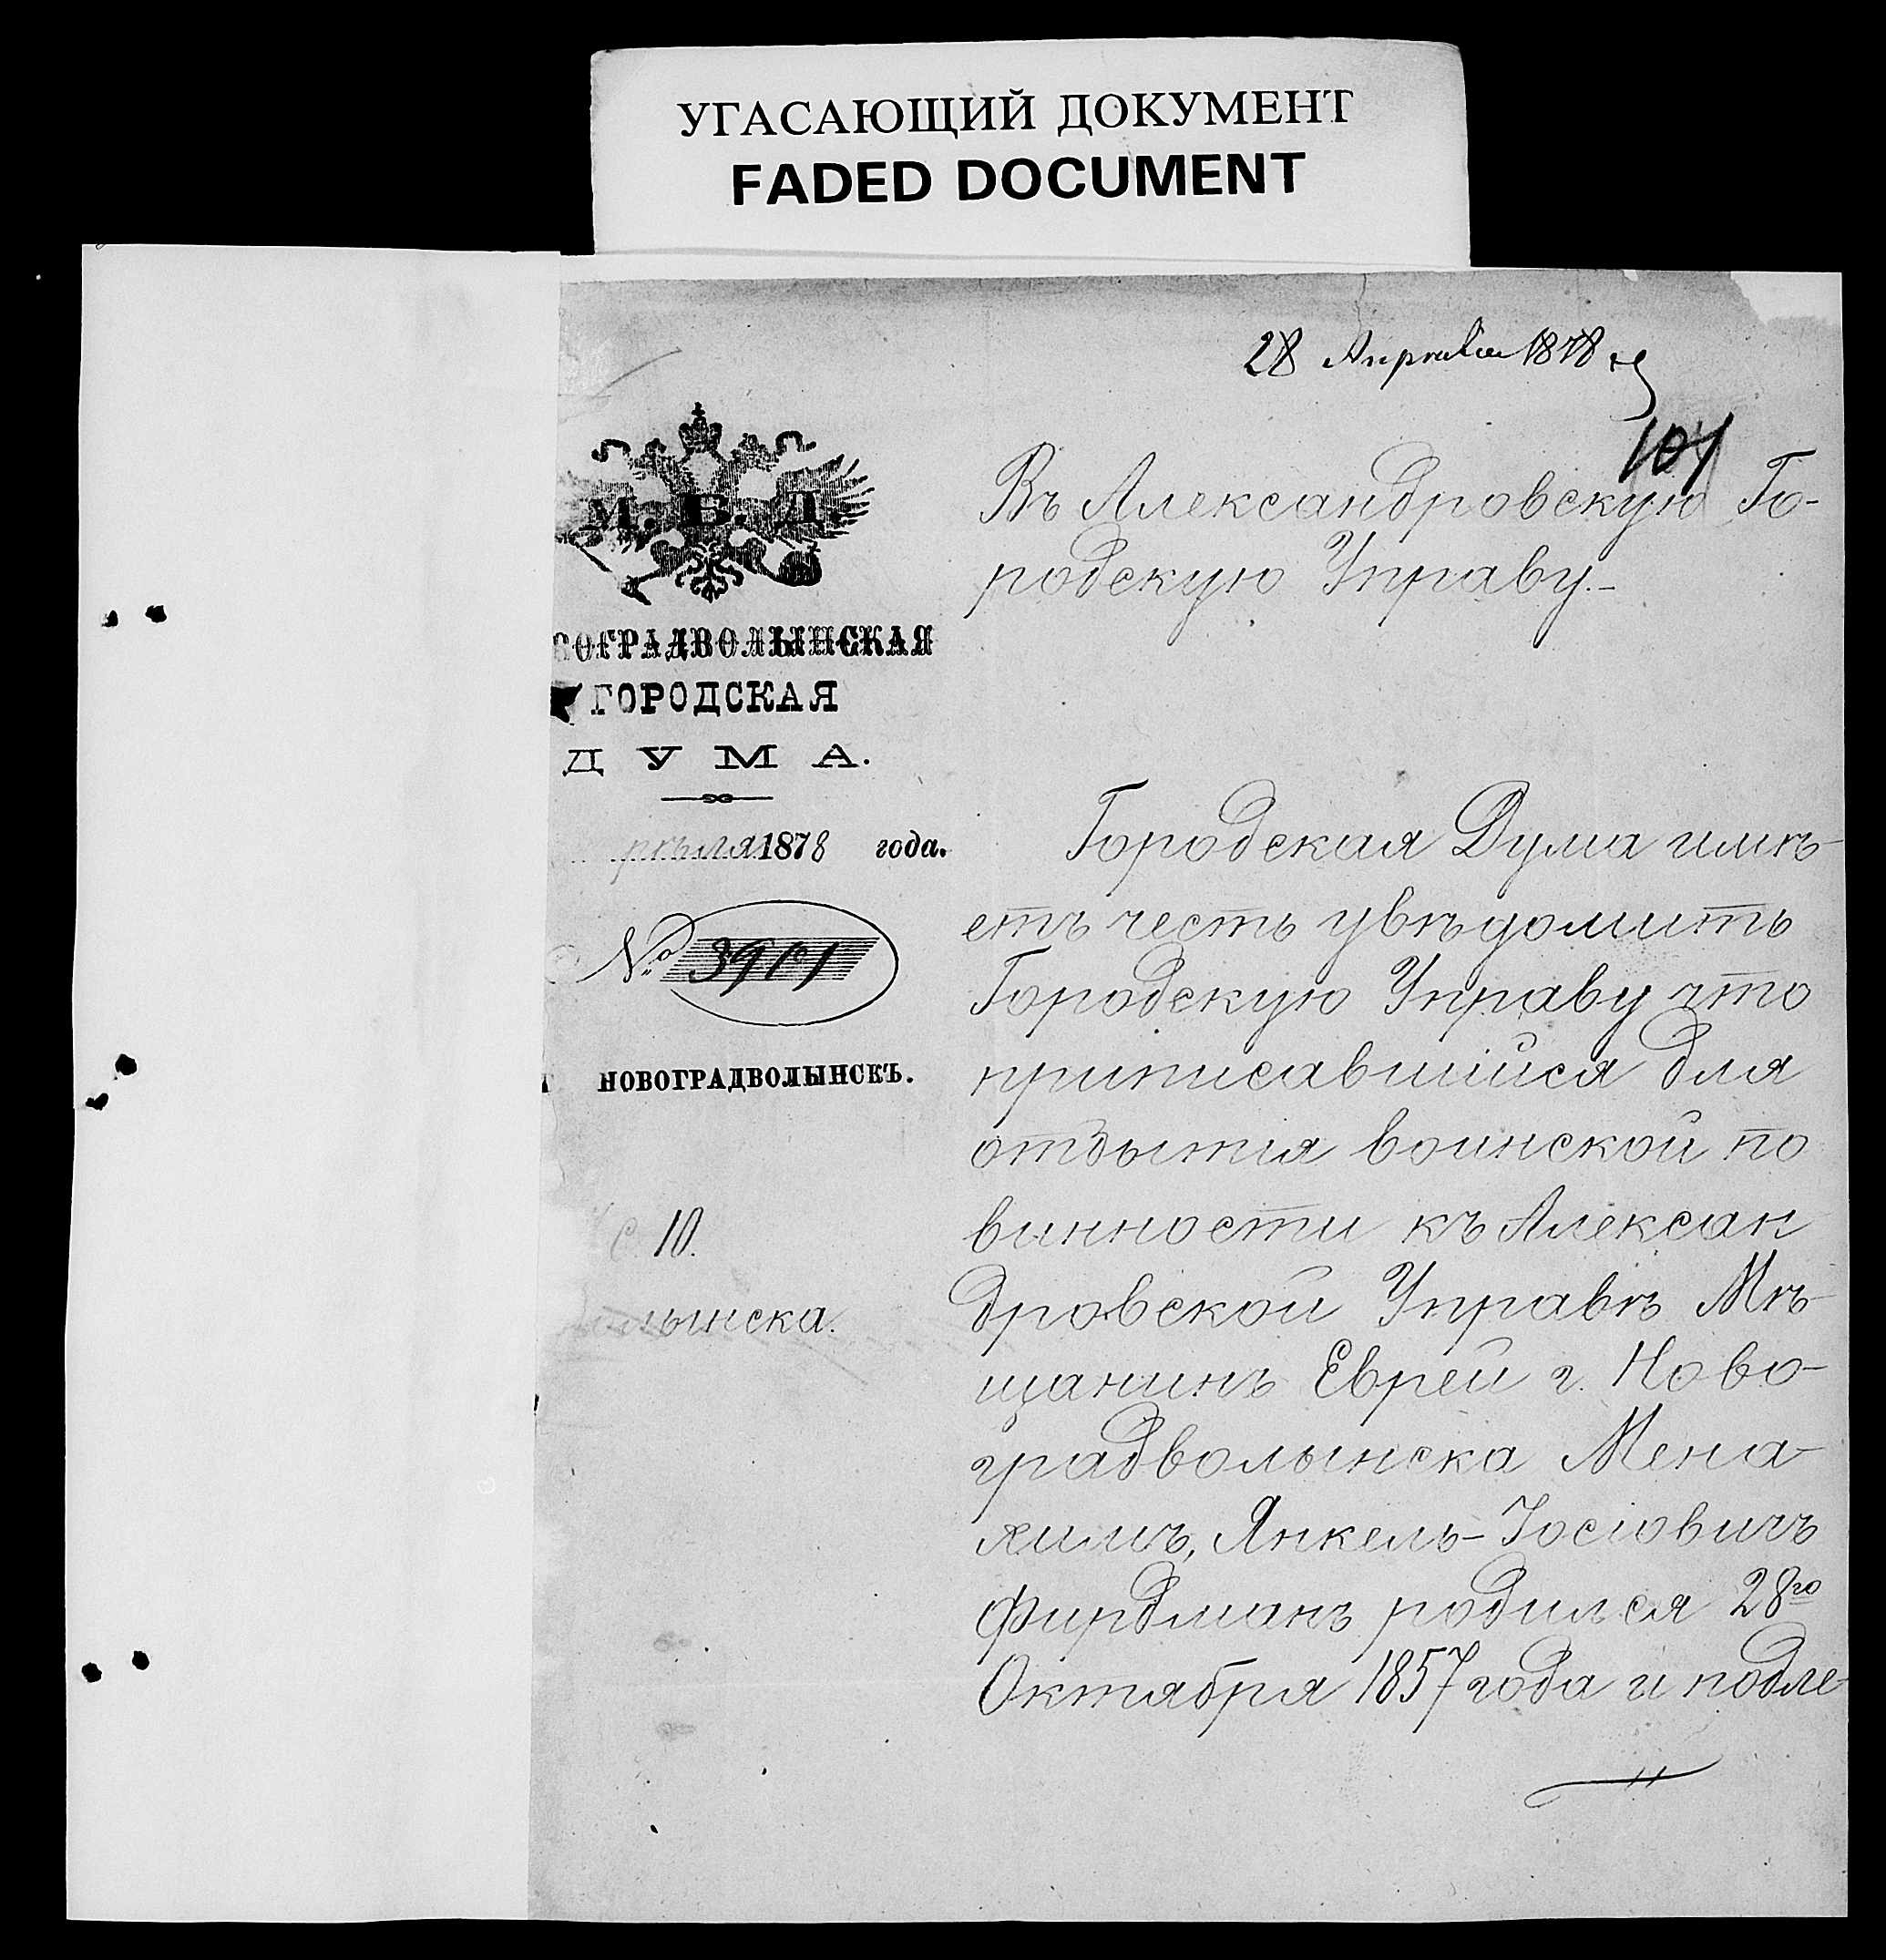 УГАСАЮЩИЙ ДОКУМЕНТ
FADED DOCUMENT
28 Апрѣля 1878 г
101
М. В. Д.
ВОГРАДВОЛЫНСКАЯ
ГОРОДСКАЯ
ДУМА.
рѣля 1878 года.
№ 3901
НОВОГРАДВОЛЫНСКЪ.
С. 10.
лынска.
Въ Александровскую Го-
родскую Управу.-
Городская Дума имѣ-
етъ честь увѣдомить
Городскую Управу что
приписавшійся для
отбытія воинской по
винности къ Алексан
дровской Управѣ Мѣ-
щанинъ Еврей г. Ново-
градволынска Мена-
химъ, Янкель-Іосіовичъ
Фирдманъ родился 28го
Октября 1857 года и подле-